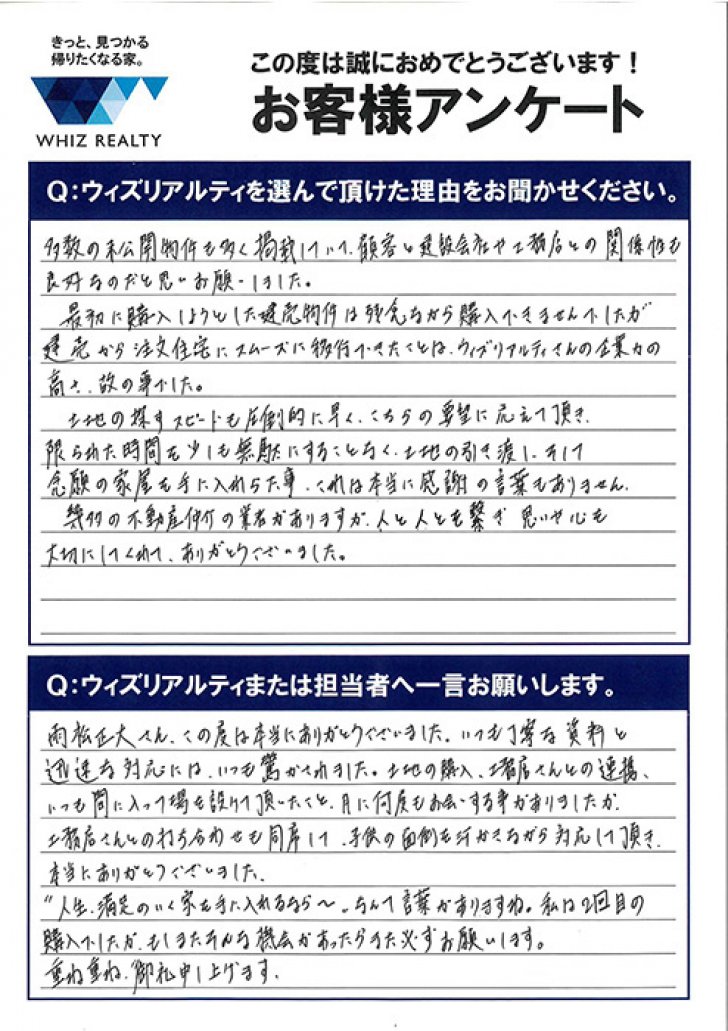 きっと、見つかる
帰りたくなる家。
WHIZ REALTY
この度は誠におめでとうございます！
お客様アンケート
Q：ウィズリアルティを選んで頂けた理由をお聞かせください。
多数の未公開物件も多く掲載していて、顧客と建設会社や工務店との関係性も
良好なのだと思いお願いしました。
最初に購入しようとした建売物件は残念ながら購入できませんでしたが
建売から注文住宅にスムーズに移行できたことは、ウィズリアルティさんの企業力の
高さ、故の事でした。
土地の探すスピードも圧倒的に早く、こちらの要望に応えて頂き、
限られた時間を少しも無駄にすることなく、土地の引き渡し、そして
念願の家屋を手に入れらた事、これは本当に感謝の言葉もありません。
幾多の不動産仲介の業者がありますが、人と人とを繋ぎ 思いや心を
大切にしてくれて、ありがとうございました。
Q：ウィズリアルティまたは担当者へ一言お願いします。
雨松正大さん、この度は本当にありがとうございました。いつも丁寧な資料と
迅速な対応には、いつも驚かされました。土地の購入、工務店さんとの連携、
いつも間に入って場を設けて頂いたこと、月に何度もお会いする事がありましたが、
工務店さんとの打ち合わせも同席して、子供の面倒を汗かきながら対応して頂き、
本当にありがとうございました。
"人生、満足のいく家を手に入れるなら〜。なんて言葉がありますね。私は2回目の
購入でしたが、もしまたそんな機会があったらまた必ずお願いします。
重ね重ね、御礼申し上げます。